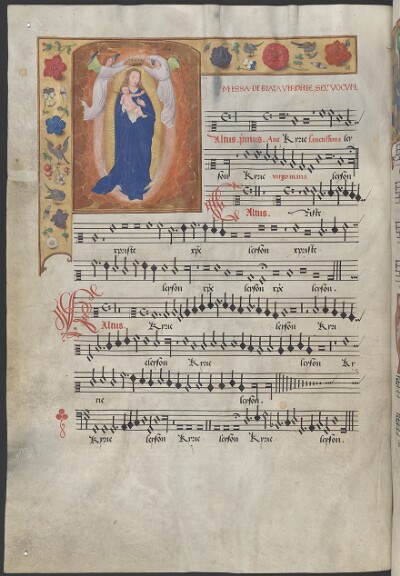 MISSA DE BEATA VIRGINE SEX VOCVM
Altus primus Aue Kyrie sanctissima ley
son Kyrie virgo maria leyson
Altus. Criste
xpriste xpe leyson xpriste
leyson xpe leyson xpe leyson.
Altus Kyrie leyson Kyrie
eleyson Kyrie leyson Ky
rie leyson.
Kyrie leyson Kyrie leyson Kyrie leyson.